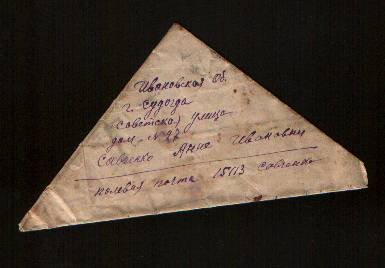 Ивановская об.
г. Судогда
советская улица
дом № 97
Савенко Анне Ивановне
полевая почта 15113 Савенко